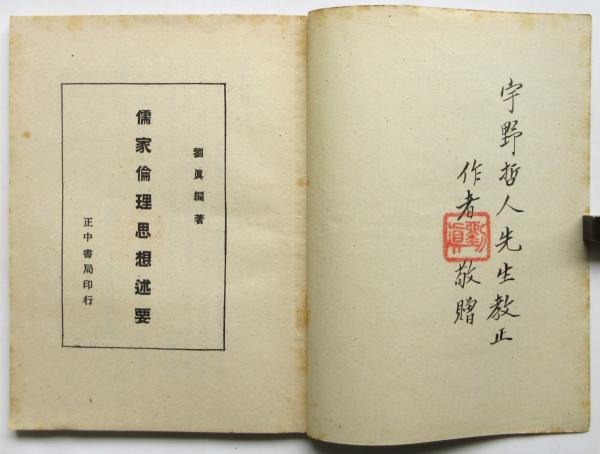 宇野哲人先生教正
作者敬贈
劉真
劉眞編著
儒家倫理思想述要
正中書局印行